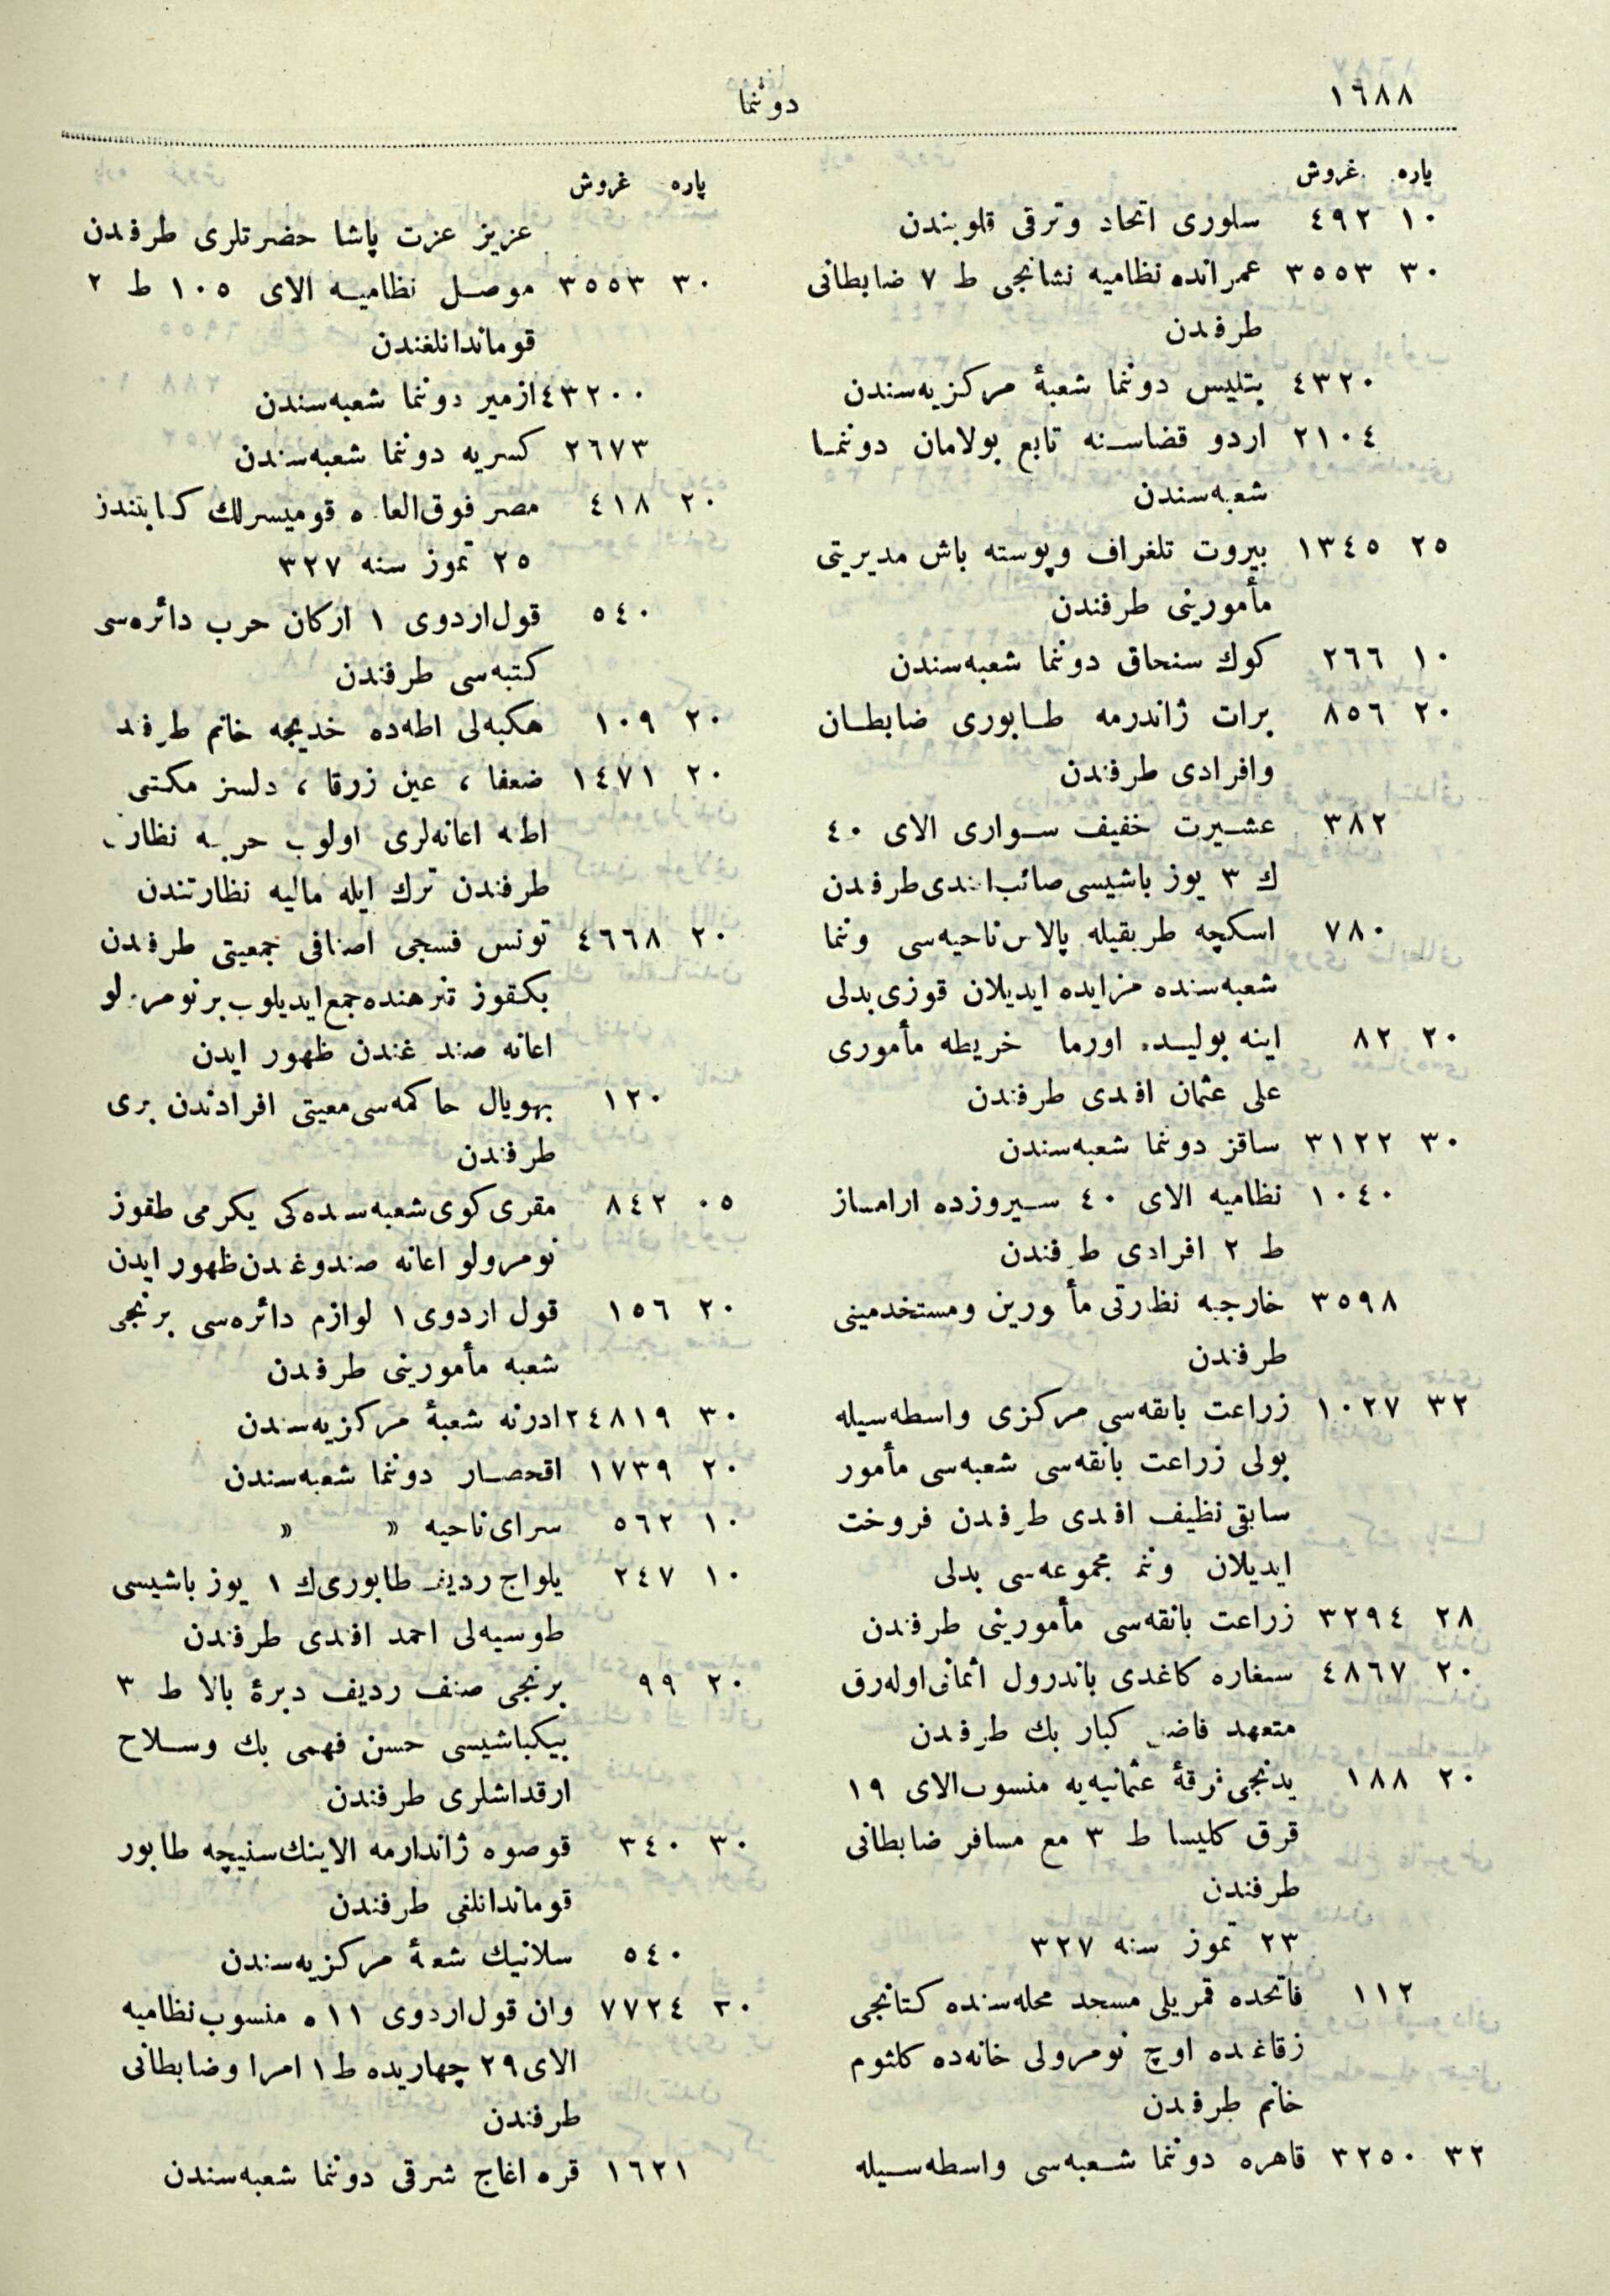 ١٦٨٨
دوننما
پاره غروش
١٠ ٤٩٢ سلوری اتحاد وترقی قلوبندن
٣٠ ٣٥٥٣ عمرانده نظامیه نشانجی ط ٧ ضابطانی
طرفندن
٤٣٢٠ بتلیس دوننما شعبهٔ مركزیه‌سندن
٢١٠٤ اردو قضاسنه تابع بولامان دوننما
شعبه‌سندن
٢٥ ١٣٤٥ بیروت تلغراف وپوسته باش مدیریتی
مأمورینی طرفندن
١٠ ٢٦٦ كوك سنجاق دوننما شعبه‌سندن
٢٠ ٨٥٦ برات ژاندرمه طابوری ضابطان
وافرادی طرفندن
٣٨٢ عشیرت خفیف سواری الای ٤٠
ك ٣ یوز باشیسی صائب افندی طرفندن
٧٨٠ اسكچه طریقیله پالاس ناحیه‌سی وننما
شعبه‌سنده مزایده ایدیلان قوزی بدلی
٢٠ ٨٢ اینه بولیده اورما خریطه مأموری
علی عثمان افندی طرفندن
٣٠ ٣١٢٢ ساقز دوننما شعبه‌سندن
١٠٤٠ نظامیه الای ٤٠ سیروزده ارامساز
ط ٢ افرادی طرفندن
٣٥٩٨ خارجیه نظارتی مأمورین ومستخدمینی
طرفندن
٣٢ ١٠٢٧ زراعت بانقه‌سی مركزی واسطه‌سیله
بولی زراعت بانقه‌سی شعبه‌سی مأمور
سابقی نظیف افندی طرفندن فروخت
ایدیلان وننما مجموعه‌سی بدلی
٢٨ ٣٢٩٤ زراعت بانقه‌سی مأمورینی طرفندن
٢٠ ٤٨٦٧ سغاره كاغدی باندرول اثمانی اوله‌رق
متعهد فاضل كبار بك طرفندن
٢٠ ١٨٨ یدنجی فرقهٔ عثمانیه‌یه منسوب الای ١٩
قرق كلیسا ط ٣ مع مسافر ضابطانی
طرفندن
٢٣ تموز سنه ٣٢٧
١١٢ فاتحده قمریلی مسجد محله‌سنده كتانجی
زقاغنده اوچ نومرولی خانه‌ده كلثوم
خانم طرفندن
٣٢ ٣٢٥٠ قاهره دوننما شعبه‌سی واسطه‌سیله
پاره غروش
عزیز عزت پاشا حضرتلری طرفندن
٣٠ ٣٥٥٣ موصل نظامیه الای ١٠٥ ط ٢
قوماندانلغندن
٤٣٢٠٠ ازمیر دوننما شعبه‌سندن
٢٦٧٣ كسریه دوننما شعبه‌سندن
٢٠ ٤١٨ مصر فوق العاده قومیسرلك كتابتندن
٢٥ تموز سنه ٣٢٧
٥٤٠ قول اردوی ١ اركان حرب دائره‌سی
كتبه‌سی طرفندن
٢٠ ١٠٩ هكبه‌لی اطه‌ده خدیجه خانم طرفند
٢٠ ١٤٧١ ضعفا ، عین زرقا ، دلسز مكتبی
اطه اعانه‌لری اولوب حربیه نظارتی
طرفندن ترك ایله مالیه نظارتندن
٢٠ ٤٦٦٨ تونس فسجی اصنافی جمعیتی طرفندن
بكقوز تنزهنده جمع ایدیلوب بر نومرولو
اعانه صندوغندن ظهور ایدن
١٢٠ بهویال حاكمه‌سی معیتی افرادندن بری
طرفندن
٠٥ ٨٤٢ مقری كوی شعبه‌سنده‌كی یكرمی طقوز
نومرولو اعانه صندوغندن ظهور ایدن
٢٠ ١٥٦ قول اردوی ١ لوازم دائره‌سی برنجی
شعبه مأمورینی طرفندن
٣٠ ٢٤٨١٩ ادرنه شعبهٔ مركزیه‌سندن
٢٠ ١٧٣٩ اقحصار دوننما شعبه‌سندن
١٠ ٥٦٢ سرای ناحیه » »
١٠ ٢٤٧ یلواج ردیف طابوری ك ١ یوز باشیسی
طوسیه‌لی احمد افندی طرفندن
٢٠ ٩٩ برنجی صنف ردیف دبرهٔ بالا ط ٣
بیكباشیسی حسن فهمی بك وسلاح
ارقداشلری طرفندن
٣٠ ٣٤٠ قوصوه ژاندارمه الاینك سنیچه طابور
قوماندانلغی طرفندن
٥٤٠ سلانیك شعبهٔ مركزیه‌سندن
٣٠ ٧٧٢٤ وان قول اردوی ١١ ه منسوب نظامیه
الای ٢٩ چهاریده ط ١ امرا وضابطانی
طرفندن
١٦٢١ قره اغاج شرقی دوننما شعبه‌سندن